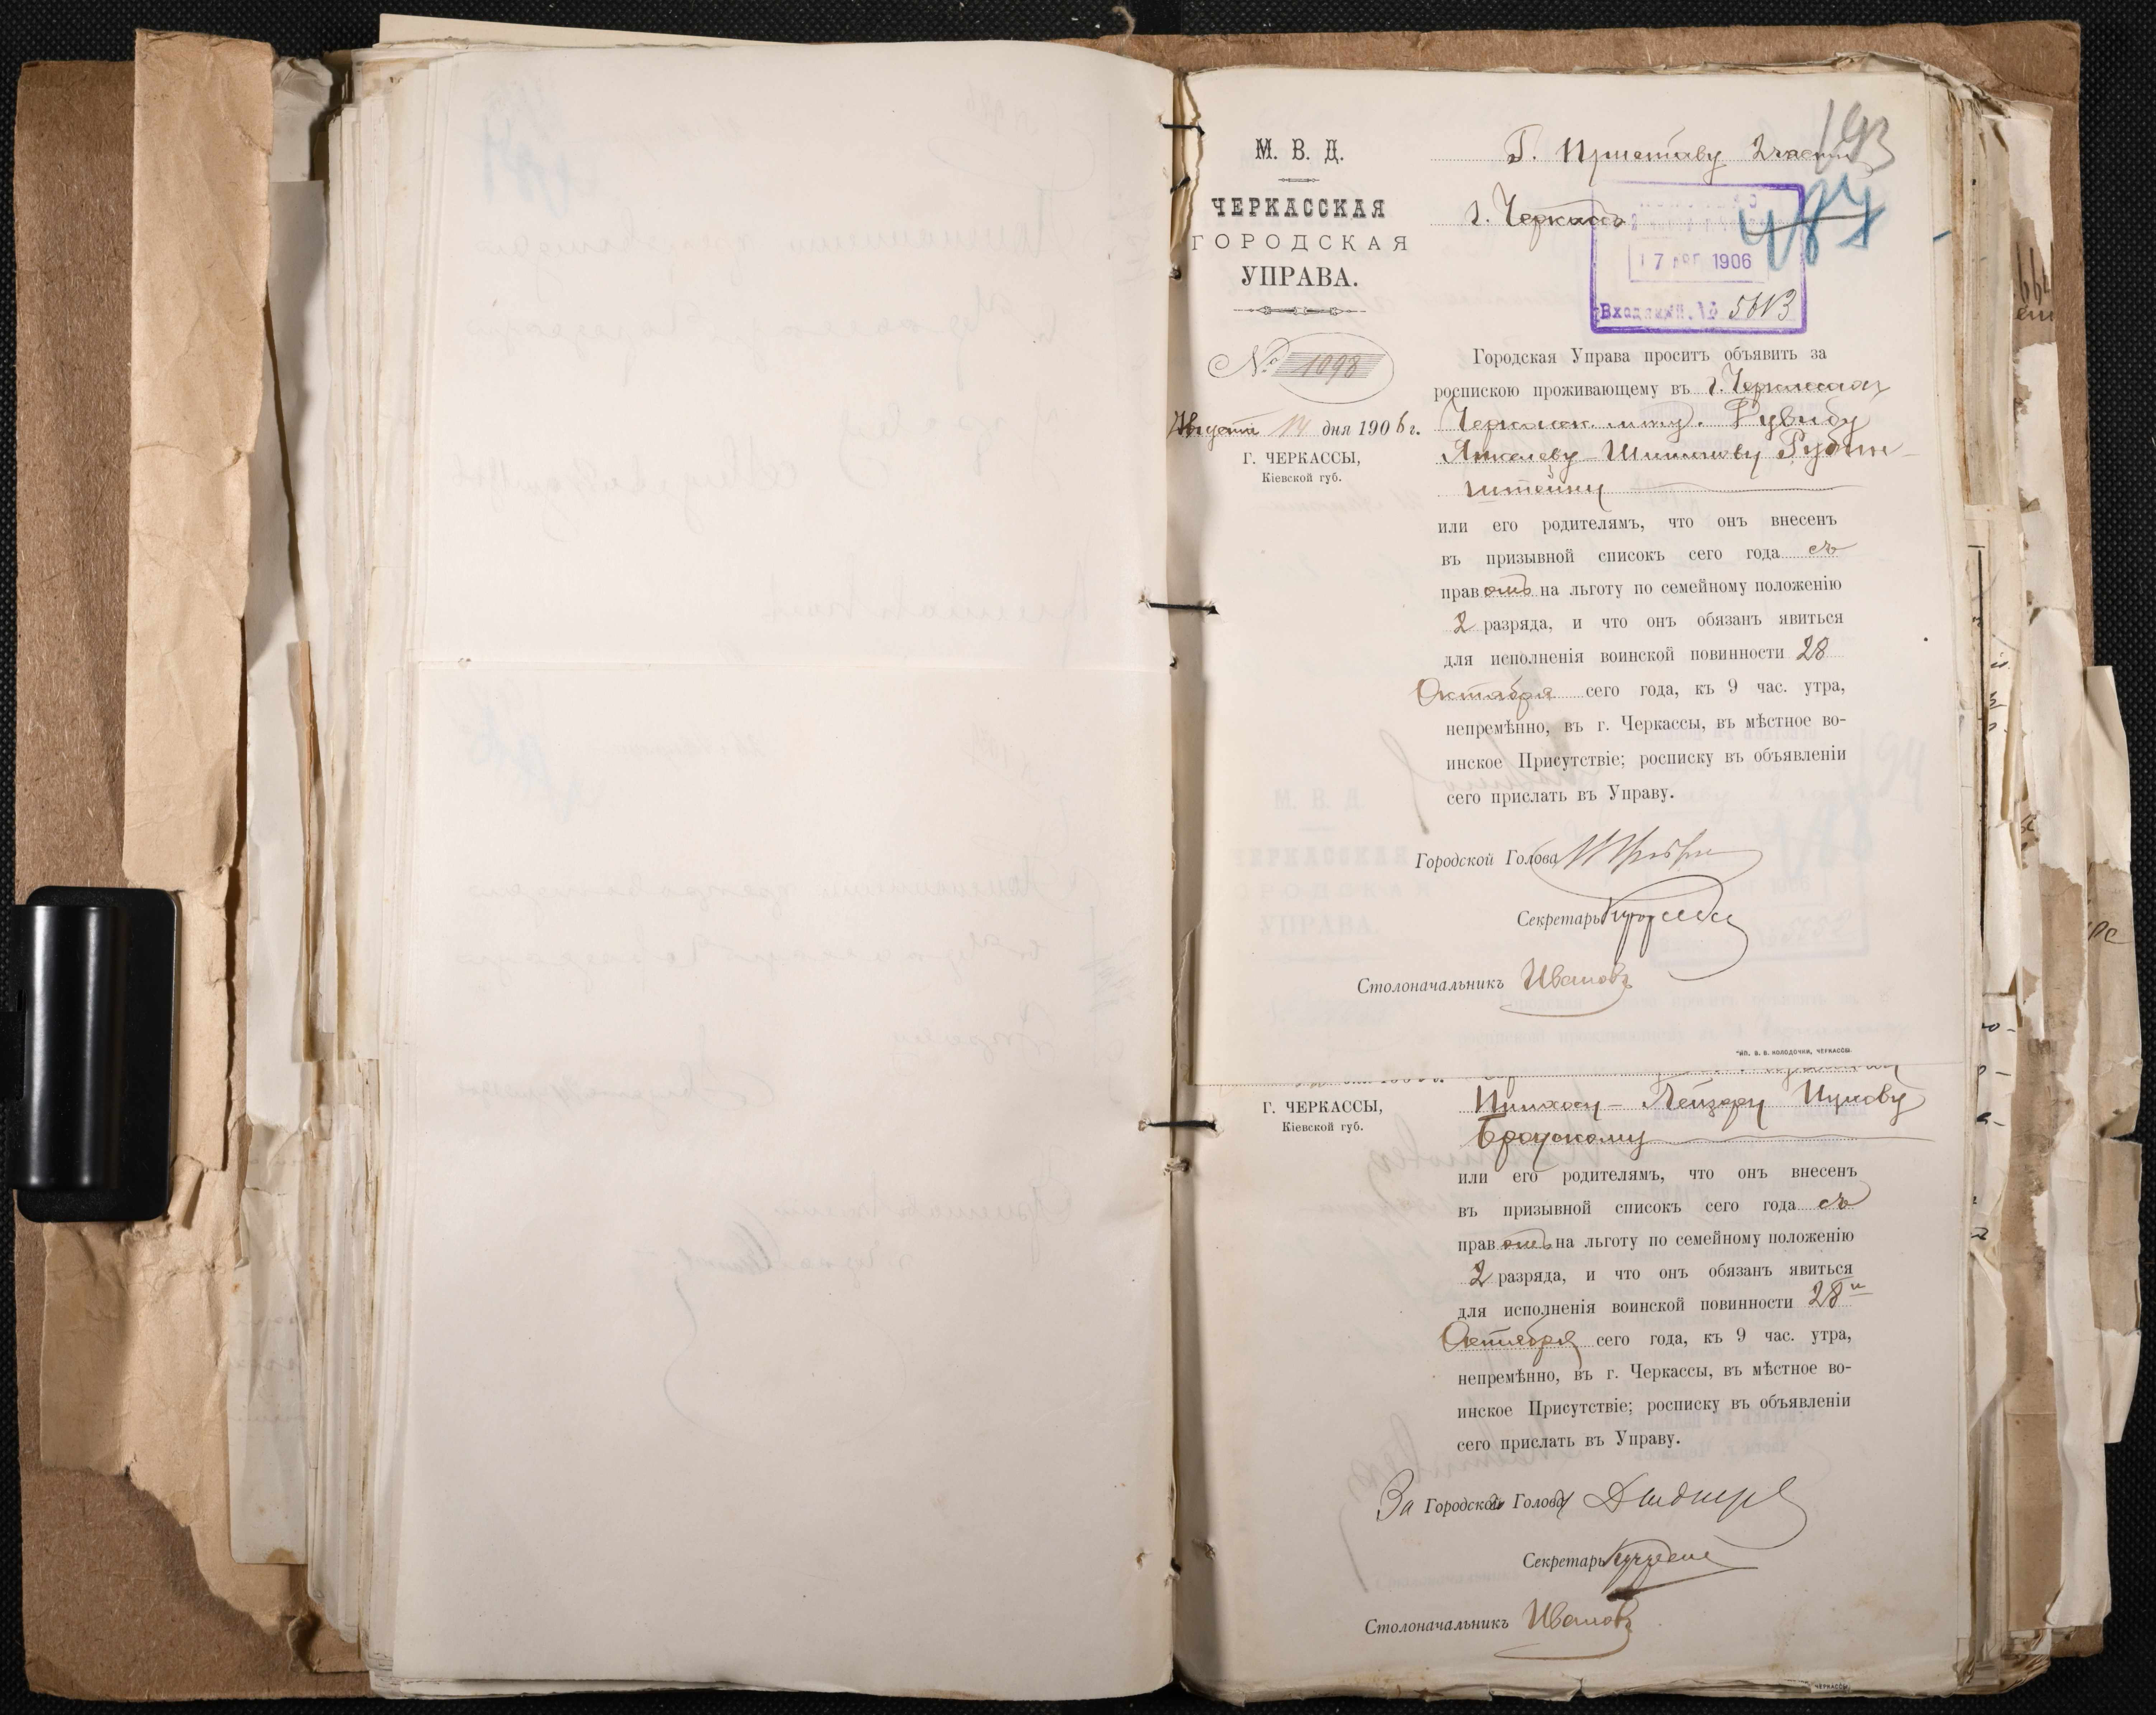 193
М. В. Д.
ЧЕРКАССКАЯ
ГОРОДСКАЯ
УПРАВА.
№ 1098
Августа 14 дня 1906 г.
Г. ЧЕРКАССЫ,
Кіевской губ.
Г. Приставу 2 части
г. Черкассъ
487
17 1906
Входящій. №
Городская Управа проситъ объявить за
роспискою проживающему въ г. Черкассахъ
Черкасск. мѣщ. Рувину
Янкелеву-Шимонову Рубин-
штейну
или его родителямъ, что онъ внесенъ
въ призывной списокъ сего года съ
правомъ на льготу по семейному положенію
2 разряда, и что онъ обязанъ явиться
для исполненія воинской повинности 28
Октября сего года, къ 9 час. утра,
непремѣнно, въ г. Черкассы, въ мѣстное во-
инское Присутствіе; росписку въ объявленіи
сего прислать въ Управу.
Городской Голова
Секретарь
Столоначальникъ Ивановъ
ТИП. В. В. КОЛОДОЧКИ, ЧЕРКАССЫ.
Г. ЧЕРКАССЫ,
Кіевской губ.
Пинхосу-Лейзеру Ицкову
Бродскому
или его родителямъ, что онъ внесенъ
въ призывной списокъ сего года съ
правомъ на льготу по семейному положенію
2 разряда, и что онъ обязанъ явиться
для исполненія воинской повинности 28го
Октября сего года, къ 9 час. утра,
непремѣнно, въ г. Черкассы, въ мѣстное во-
инское Присутствіе; росписку въ объявленіи
сего прислать въ Управу.
За Городского Голову
Секретарь
Столоначальникъ Ивановъ
ЧЕРКАССЫ